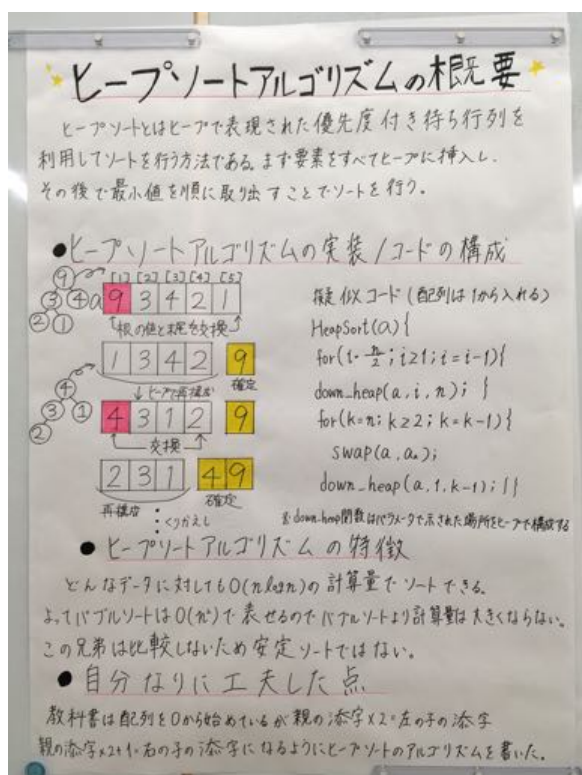 ヒープソートアルゴリズムの概要
ヒープソートとはヒープで表現された優先度付き待ち行列を
利用してソートを行う方法である。まず要素をすべてヒープに挿入し、
その後で最小値を順に取り出すことでソートを行う。
●ヒープソートアルゴリズムの実装/コードの構成
9 3 4 2 1
a [1] [2] [3] [4] [5]
9 3 4 2 1
↑根の値と末尾を交換↑
1 3 4 2 9
確定
↓ヒープで再構成
4 3 1 2
4 3 1 2 9
↑交換↑
2 3 1 4 9
再構成 確定
くりかえし
擬似コード(配列は1から入れる)
HeapSort(a){
for(i=n/2;i≥1;i=i-1){
down_heap(a,i,n); }
for(k=n;k≥2;k=k-1){
swap(a,aₖ);
down_heap(a,1,k-1);}}
※down_heap関数はパラメータで示された場所をヒープで構成する
●ヒープソートアルゴリズムの特徴
どんなデータに対してもO(nlogn)の計算量でソートできる。
よってバブルソートはO(n²)で表せるのでバブルソートより計算量は大きくならない。
この兄弟は比較しないため安定ソートではない。
●自分なりに工夫した点
教科書は配列を0から始めているが親の添字×2=左の子の添字
親の添字×2+1=右の子の添字になるようにヒープソートのアルゴリズムを書いた。